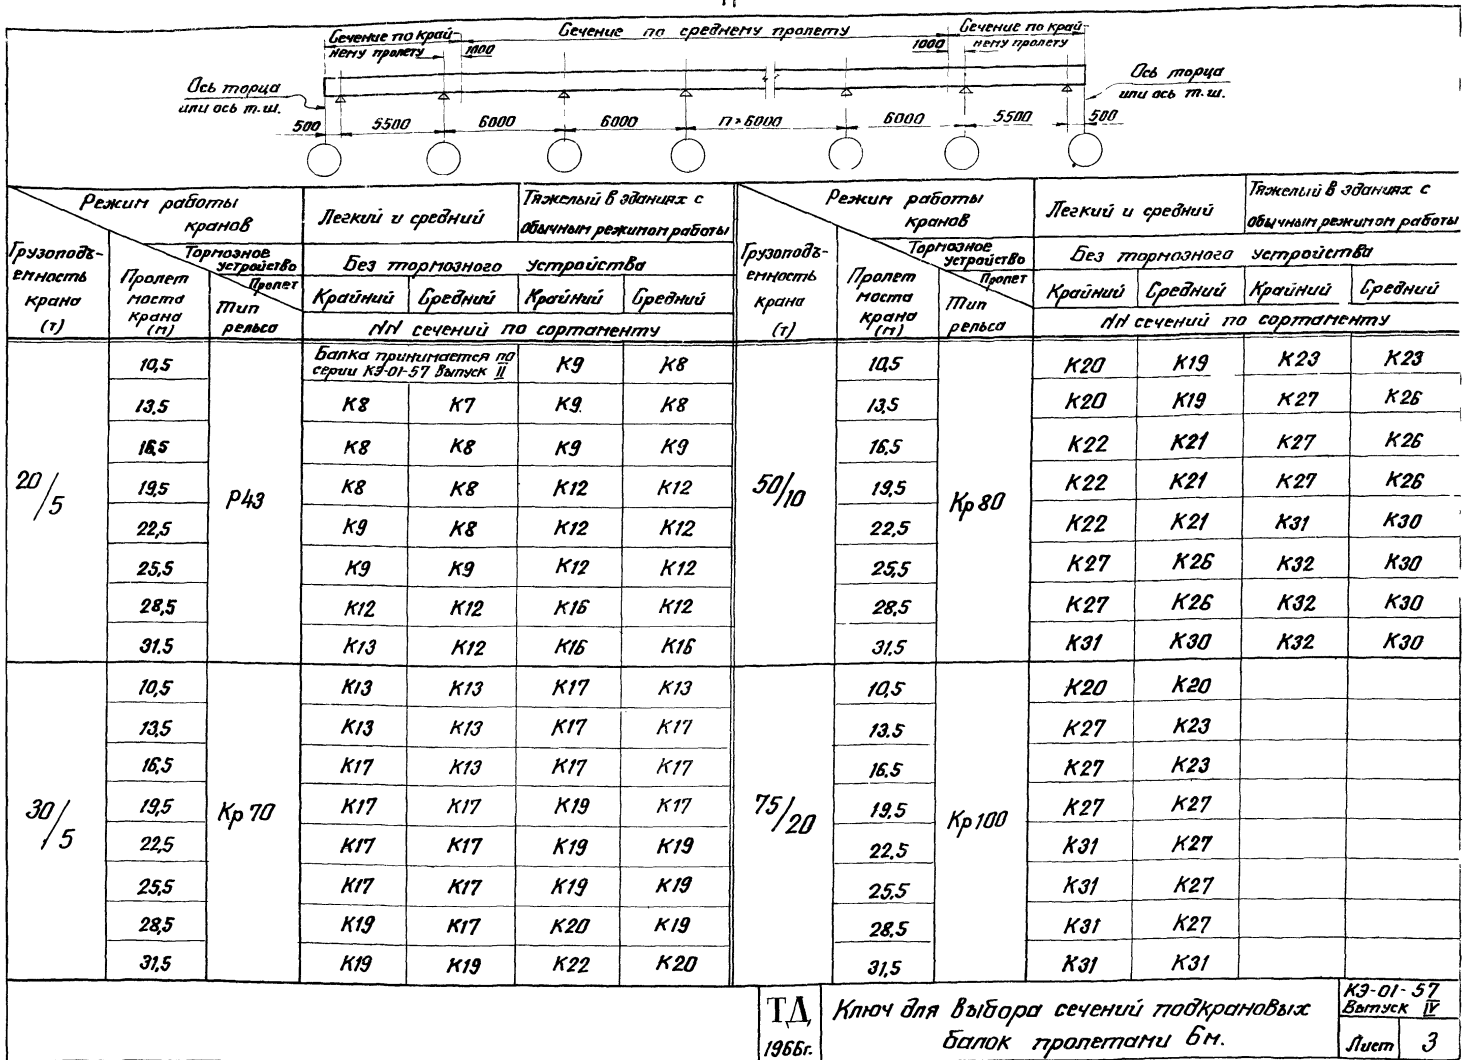 Сечение по край-
нему пролету
1000
Сечение по среднему пролету
1000
Сечение по край-
нему пролету
Ось торца
или ось т.ш.
Ось торца
или ось т.ш.
500 5500 6000 6000 n×6000 6000 5500 500
Режим работы кранов
Легкий и средний
Тяжелый в зданиях с обычным режимом работы
Грузоподъ-
емность
крана
(т)
Пролет
моста
крана
(м)
Тормозное
устройство
Без тормозного устройства
Пролет
Тип
рельса
Крайний Средний Крайний Средний
NN сечений по сортаменту
20/5
Р43
10,5 Балка принимается по серии КЭ-01-57 Выпуск II К9 К8
13,5 К8 К7 К9 К8
16,5 К8 К8 К9 К9
19,5 К8 К8 К12 К12
22,5 К9 К8 К12 К12
25,5 К9 К9 К12 К12
28,5 К12 К12 К16 К12
31,5 К13 К12 К16 К16
30/5
Кр 70
10,5 К13 К13 К17 К13
13,5 К13 К13 К17 К17
16,5 К17 К13 К17 К17
19,5 К17 К17 К19 К17
22,5 К17 К17 К19 К19
25,5 К17 К17 К19 К19
28,5 К19 К17 К20 К19
31,5 К19 К19 К22 К20
Режим работы
кранов
Легкий и средний
Тяжелый в зданиях с
обычным режимом работы
Грузоподъ-
емность
крана
(т)
Пролет
моста
крана
(м)
Тормозное
устройство
Без тормозного устройства
Пролет
Тип
рельса
Крайний Средний Крайний Средний
NN сечений по сортаменту
50/10
Кр 80
10,5 К20 К19 К23 К23
13,5 К20 К19 К27 К26
16,5 К22 К21 К27 К26
19,5 К22 К21 К27 К26
22,5 К22 К21 К31 К30
25,5 К27 К26 К32 К30
28,5 К27 К26 К32 К30
31,5 К31 К30 К32 К30
75/20
Кр 100
10,5 К20 К20
13.5 К27 К23
16.5 К27 К23
19,5 К27 К27
22,5 К31 К27
25,5 К31 К27
28,5 К31 К27
31,5 К31 К31
ТД
1966г.
Ключ для выбора сечений подкрановых
балок пролетами 6м.
КЭ-01-57
Выпуск IV
Лист 3